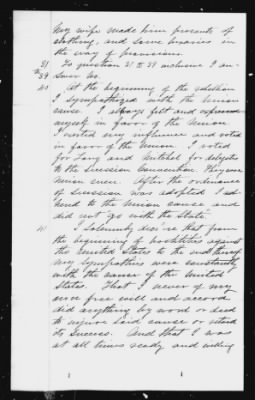 My wife made him presents of
clothing, and some luxuries in
the way of provisions.
31 To question 31 to 39 inclusive I an-
to
39 swer No.
40 At the beginning of the rebellion
I sympathized with the Union
cause. I always felt and expressed
myself in favor of the Union
I exerted my influence and voted
in favor of the Union. I voted
for Long and Mitchel for delegates
to the Secession Convention. They were
Union men. After the ordinance
of Secession was adopted I ad-
hered to the Union cause and
did not "go with the State."
41 I solemnly declare that from
the beginning of hostilities against
the United States to the end thereof
my sympathies were constantly
with the cause of the United
States. That I never of my
own free will and accord
did anything by word or deed
to injure said cause or retard
its success. And that I was
at all times ready and willing